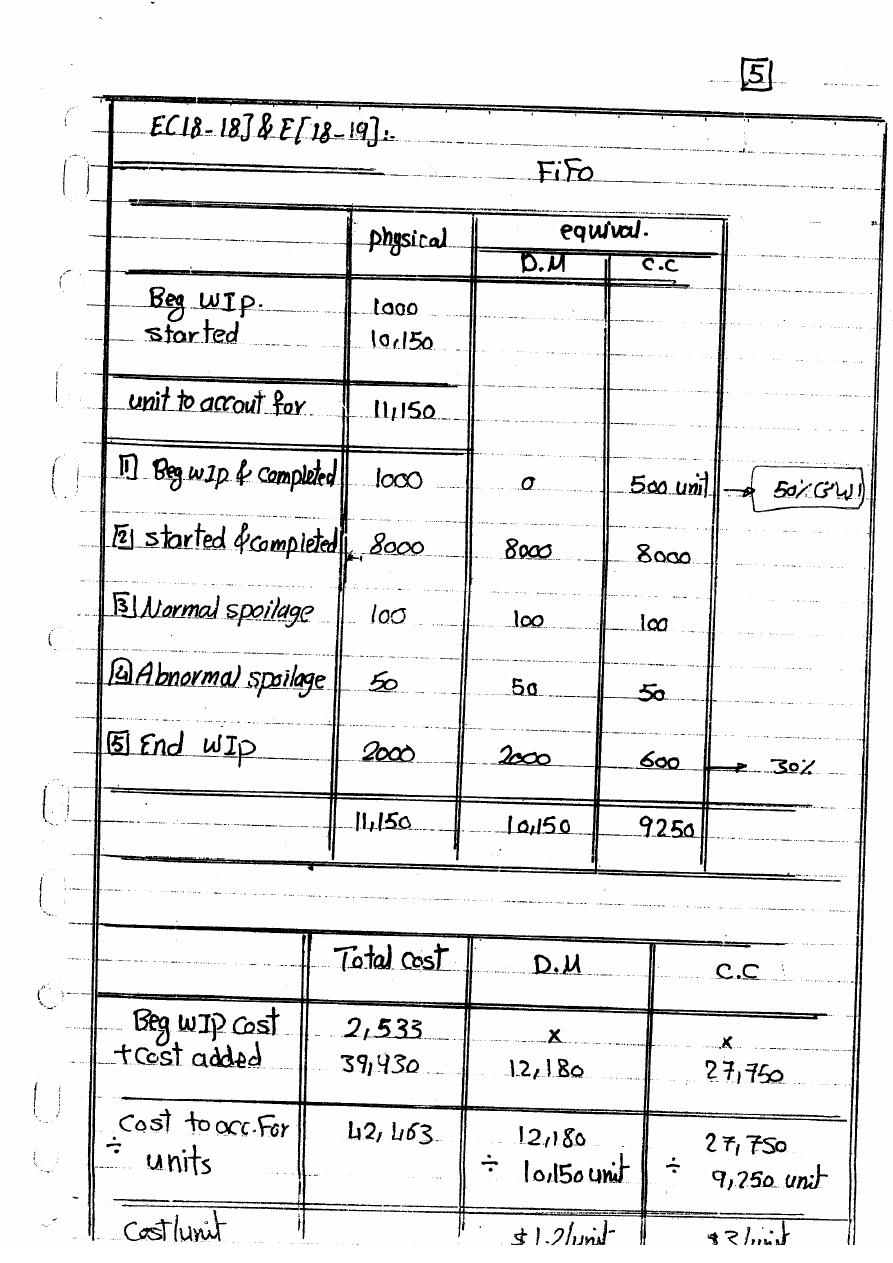 5
E[18-18] & E[18-19]:-
FiFo
physical equival.
D.M C.C
Beg WIp. 1000
started 10,150
unit to accout for 11,150
1 Beg WIp & completed 1000 0 500 unit → 50%
2 started & completed 8000 8000 8000
3 Normal spoilage 100 100 100
4 Abnormal spoilage 50 50 50
5 End WIp 2000 2000 600 → 30%
11,150 10,150 9250
Total cost D.M C.C
Beg WIp cost 2,533 x x
+ cost added 39,930 12,180 27,750
Cost to acc. For 42,463 12,180 27,750
÷ units ÷ 10,150 unit ÷ 9,250 unit
Cost/unit $1.2/unit $3/unit